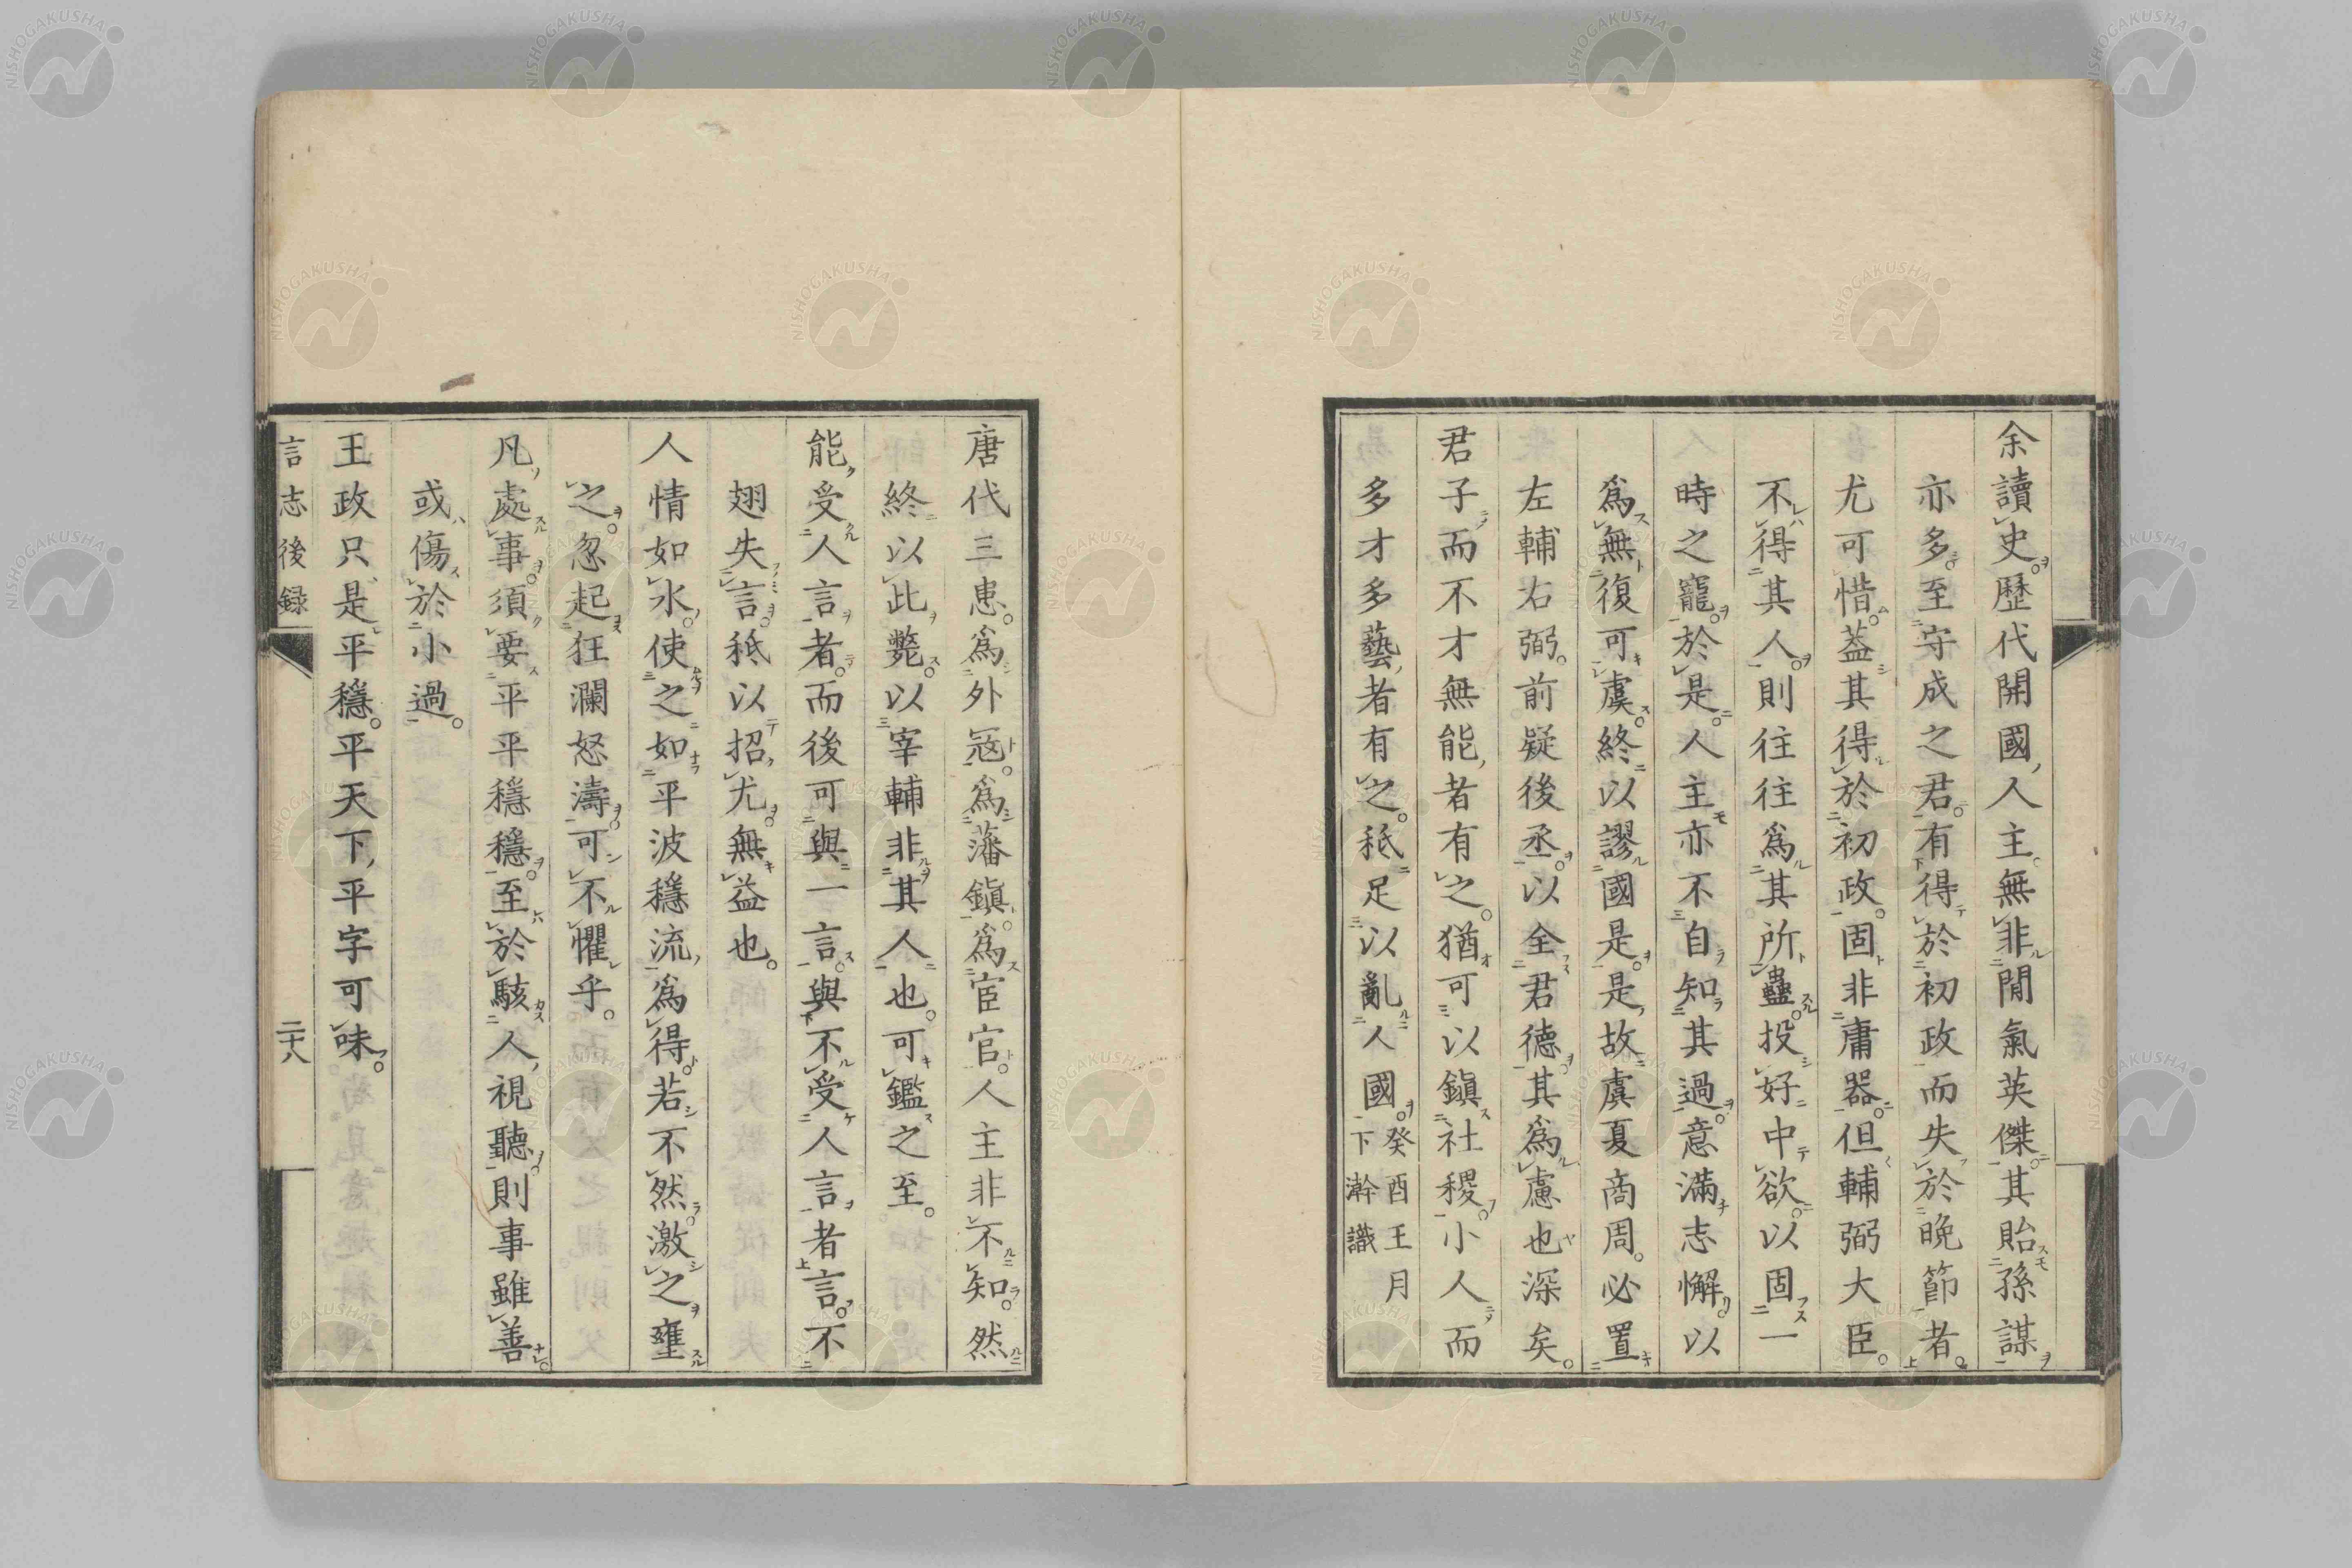 余讀史。歷代開國人主。無非間氣英傑。其貽孫謀
亦多。至守成之君。有得於初政而失於晩節者。
尤可惜。蓋其得於初政。固非庸器。但輔弼大臣。
不得其人。則往往爲其所蠱。投好中欲。以固一
時之寵。於是人主亦不自知其過。意滿志懈。以
爲無復可虞。終以謬國是。是故虞夏商周。必置
左輔右弼。前疑後丞。以全君德。其爲慮也深矣。
君子而不才無能者有之。猶可以鎭社稷。小人而
多才多藝者有之。秖足以亂人國。癸酉王月
下澣識
唐代三患。爲外寇。爲藩鎭。爲宦官。人主非不知。然
終以此斃。以宰輔非其人也。可鑑之至。
能受人言者。而後可與一言。與不受人言者言。不
翅失言。秖以招尤。無益也。
人情如水。使之如平波穩流爲得。若不然激之壅
之。忽起狂瀾怒濤。可不懼乎。
凡處事須要平平穩穩。至於駭人視聽。則事雖善。
或傷於小過。
王政只是平穩。平天下平字可味。
言志後録
二十八
NISHOGAKUSHA